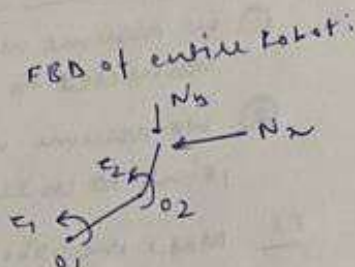 FBD of entire Robot:
Ny
Nx
τ2
O2
τ1
O1